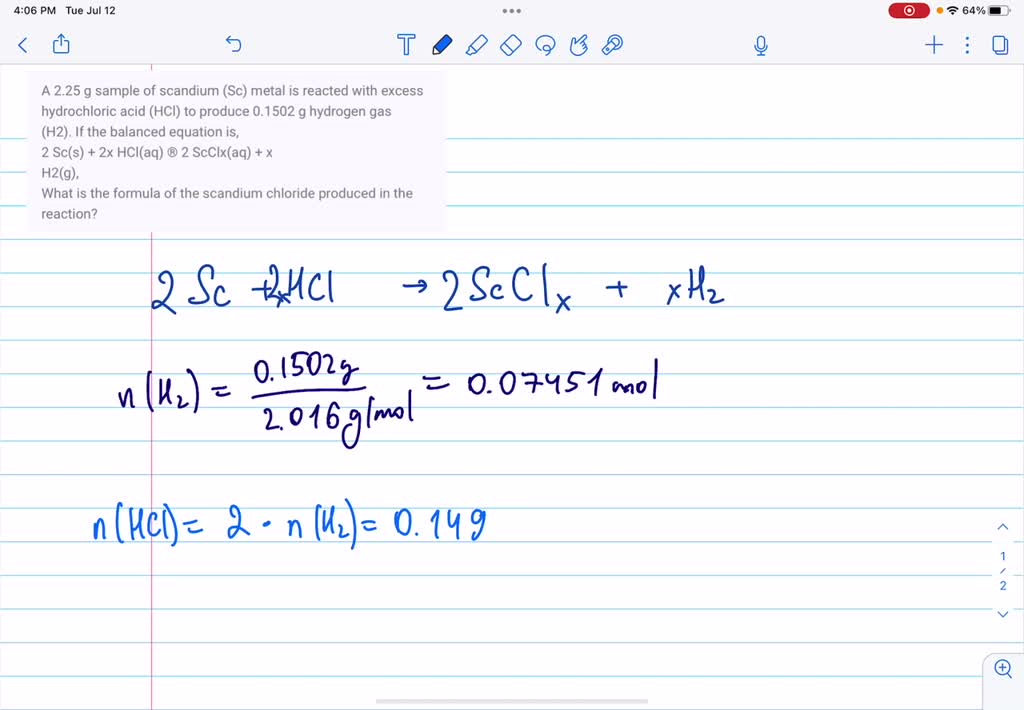 4:06 PM Tue Jul 12
64%
A 2.25 g sample of scandium (Sc) metal is reacted with excess
hydrochloric acid (HCl) to produce 0.1502 g hydrogen gas
(H2). If the balanced equation is,
2 Sc(s) + 2x HCl(aq) ® 2 ScClx(aq) + x
H2(g),
What is the formula of the scandium chloride produced in the
reaction?
2 Sc + 2xHCl → 2 ScClx + xH2
n(H2) = 0.1502g / 2.016 g/mol = 0.07451 mol
n(HCl) = 2 · n(H2) = 0.149
1
/
2